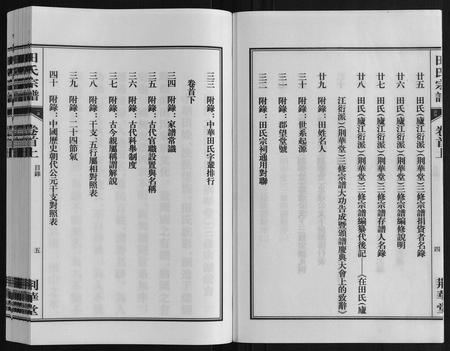 田氏宗譜
卷首上
四
荆華堂
廿五 田氏（廬江衍派）（荆華堂）三修宗譜捐資者名錄
廿六 田氏（廬江衍派）（荆華堂）三修宗譜編修說明
廿七 田氏（廬江衍派）（荆華堂）三修宗譜存譜人名錄
廿八 田氏（廬江衍派）（荆華堂）三修宗譜編纂代後記——（在田氏（廬
江衍派）（荆華堂）三修宗譜大功告成暨頒譜慶典大會上的致辭）
廿九 附錄：田姓名人
三十 附錄：世系起源
三一 附錄：郡望堂號
三二 附錄：田氏宗祠通用對聯
三三 附錄：中華田氏字輩排行
卷首下
三四 附錄：家譜常識
三五 附錄：古代官職設置與名稱
三六 附錄：古代科舉制度
三七 附錄：古今親屬稱謂解說
三八 附錄：干支、五行屬相對照表
三九 附錄：二十四節氣
四十 附錄：中國歷史朝代公元干支對照表
田氏宗譜
卷首上
目錄
五
荆華堂